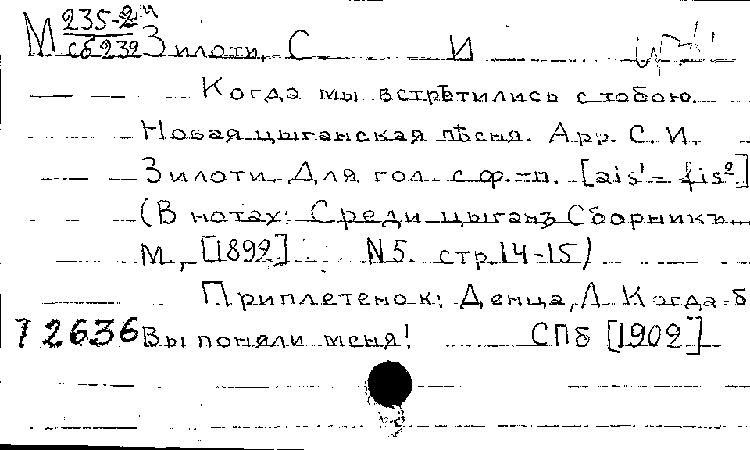 М 235-2
сб 239 Зилоти, С И
Когда мы встрѣтились с тобою.
Новая цыганская пѣсня. Арр. С. И.
Зилоти. Для гол. с ф.-п. [ais¹ - fis²]
(В нотах: Среди цыганъ Сборникъ.
М., [1892] N5. стр. 14-15)
Приплетено к: Денца, Л. Когда б
Вы поняли меня! СПб [1902]
12636